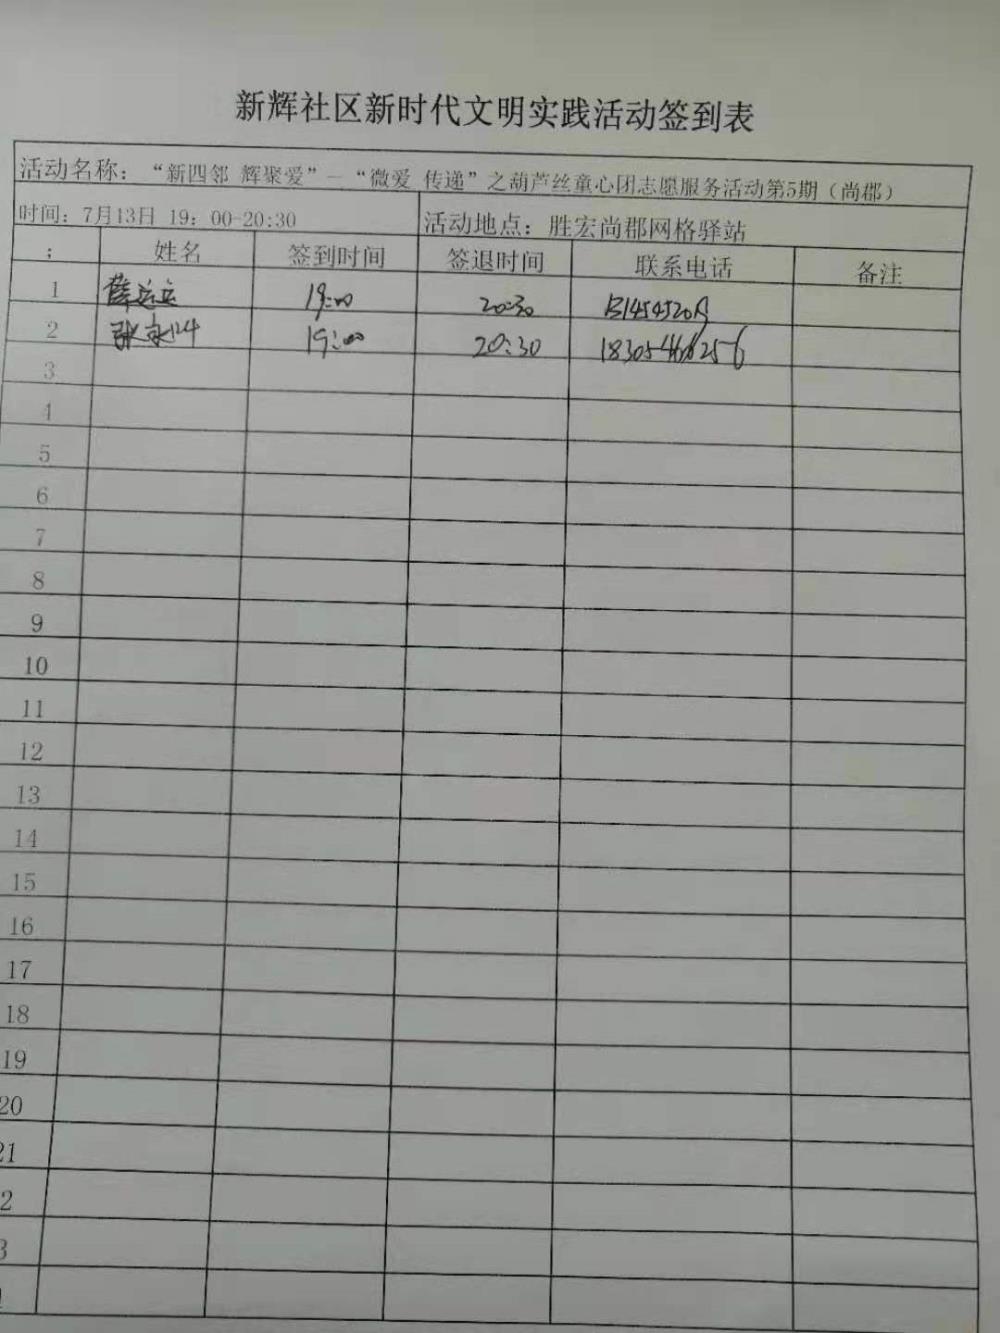 新辉社区新时代文明实践活动签到表
活动名称：“新四邻 辉聚爱”—“微爱 传递”之葫芦丝童心团志愿服务活动第5期（尚郡）
时间：7月13日 19：00-20:30 活动地点：胜宏尚郡网格驿站
： 姓名 签到时间 签退时间 联系电话 备注
1 薛运运 19:00 20:30
2 19:00 20:30
3
4
5
6
7
8
9
10
11
12
13
14
15
16
17
18
19
20
21
2
3